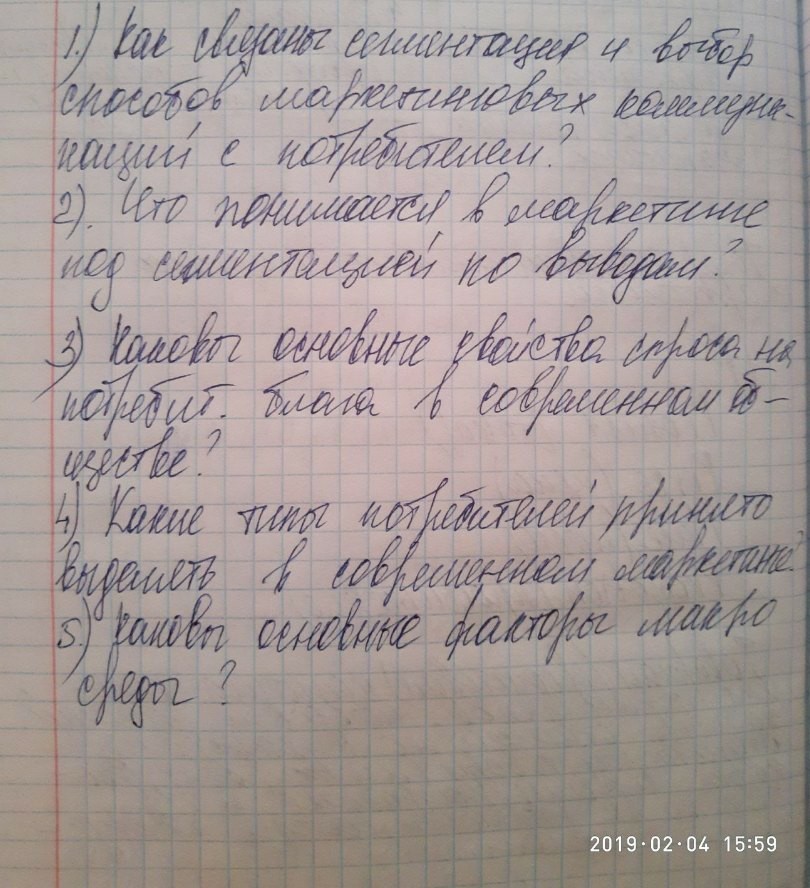 1.) Как связаны сегментация и выбор
способов маркетинговых коммуни-
каций с потребителем?
2). Что понимается в маркетинге
под сегментацией по выводам?
3) Каковы основные свойства спроса на
потребит. блага в современном об-
ществе?
4) Какие типы потребителей принято
выделять в современном маркетинге?
5.) Каковы основные факторы макро
среды?
2019·02·04 15:59